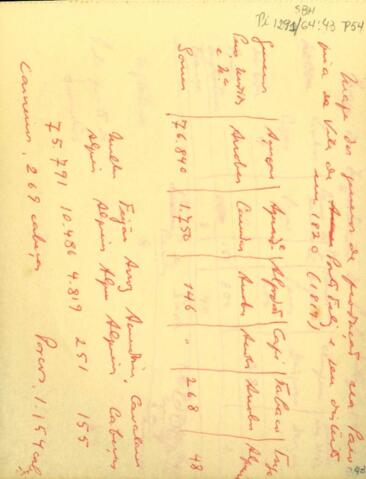 SBH
Pi 1291/64:43 P54
Mapa dos generos de producção da Paro
quia da Villa de Porto Feliz e seu districto
em 1820 (1819)
Generos Assucar Aguard. Algodão Café Tabaco Trigo
Pezo, medida Arrobas Canadas Arrobas Arrobas Arrobas Alqueires
e Nº
Somas 76.840 1.750 146 " 268 48
Milho Feijão Arroz Cavalares
Alqueires Alqueires Alqueires Alqueires Cabeças
75.791 10.486 4.819 251 155
Carneiros, 269 cabeças Porcos, 1.154 cabç